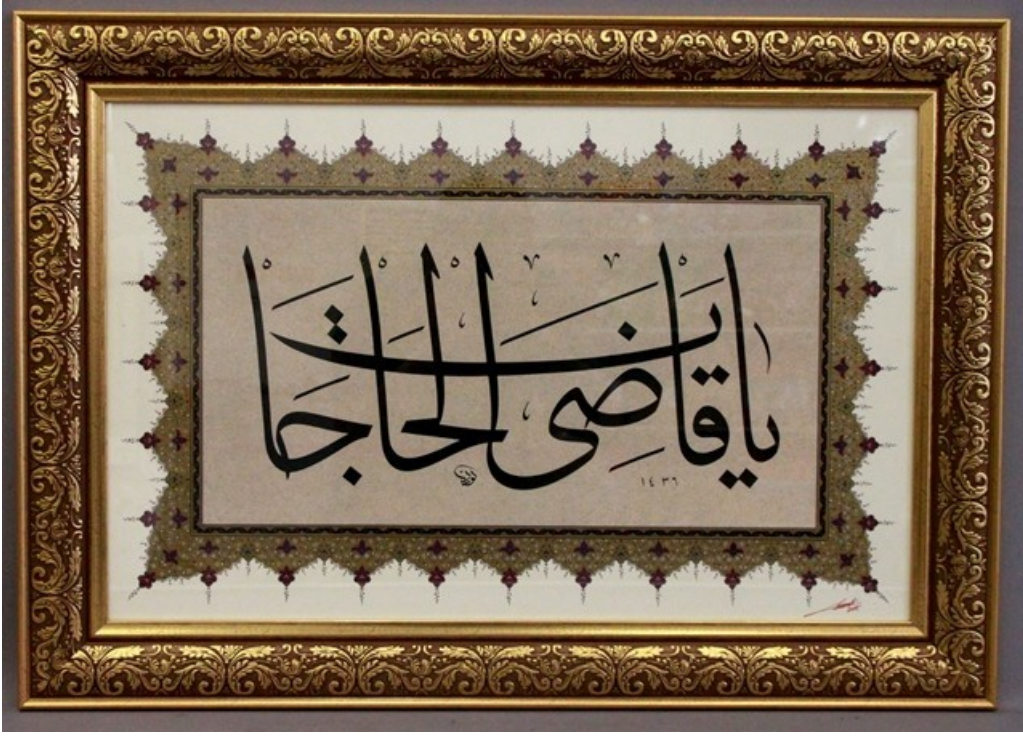 يا قاضى الحاجات
١٤٣٦